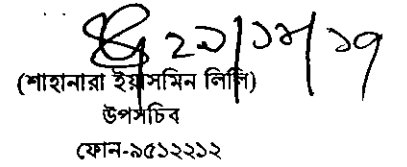 ২৯/১০/১৭
(শাহানারা ইয়াসমিন লিলি)
উপসচিব
ফোন-৯৫১২২১২